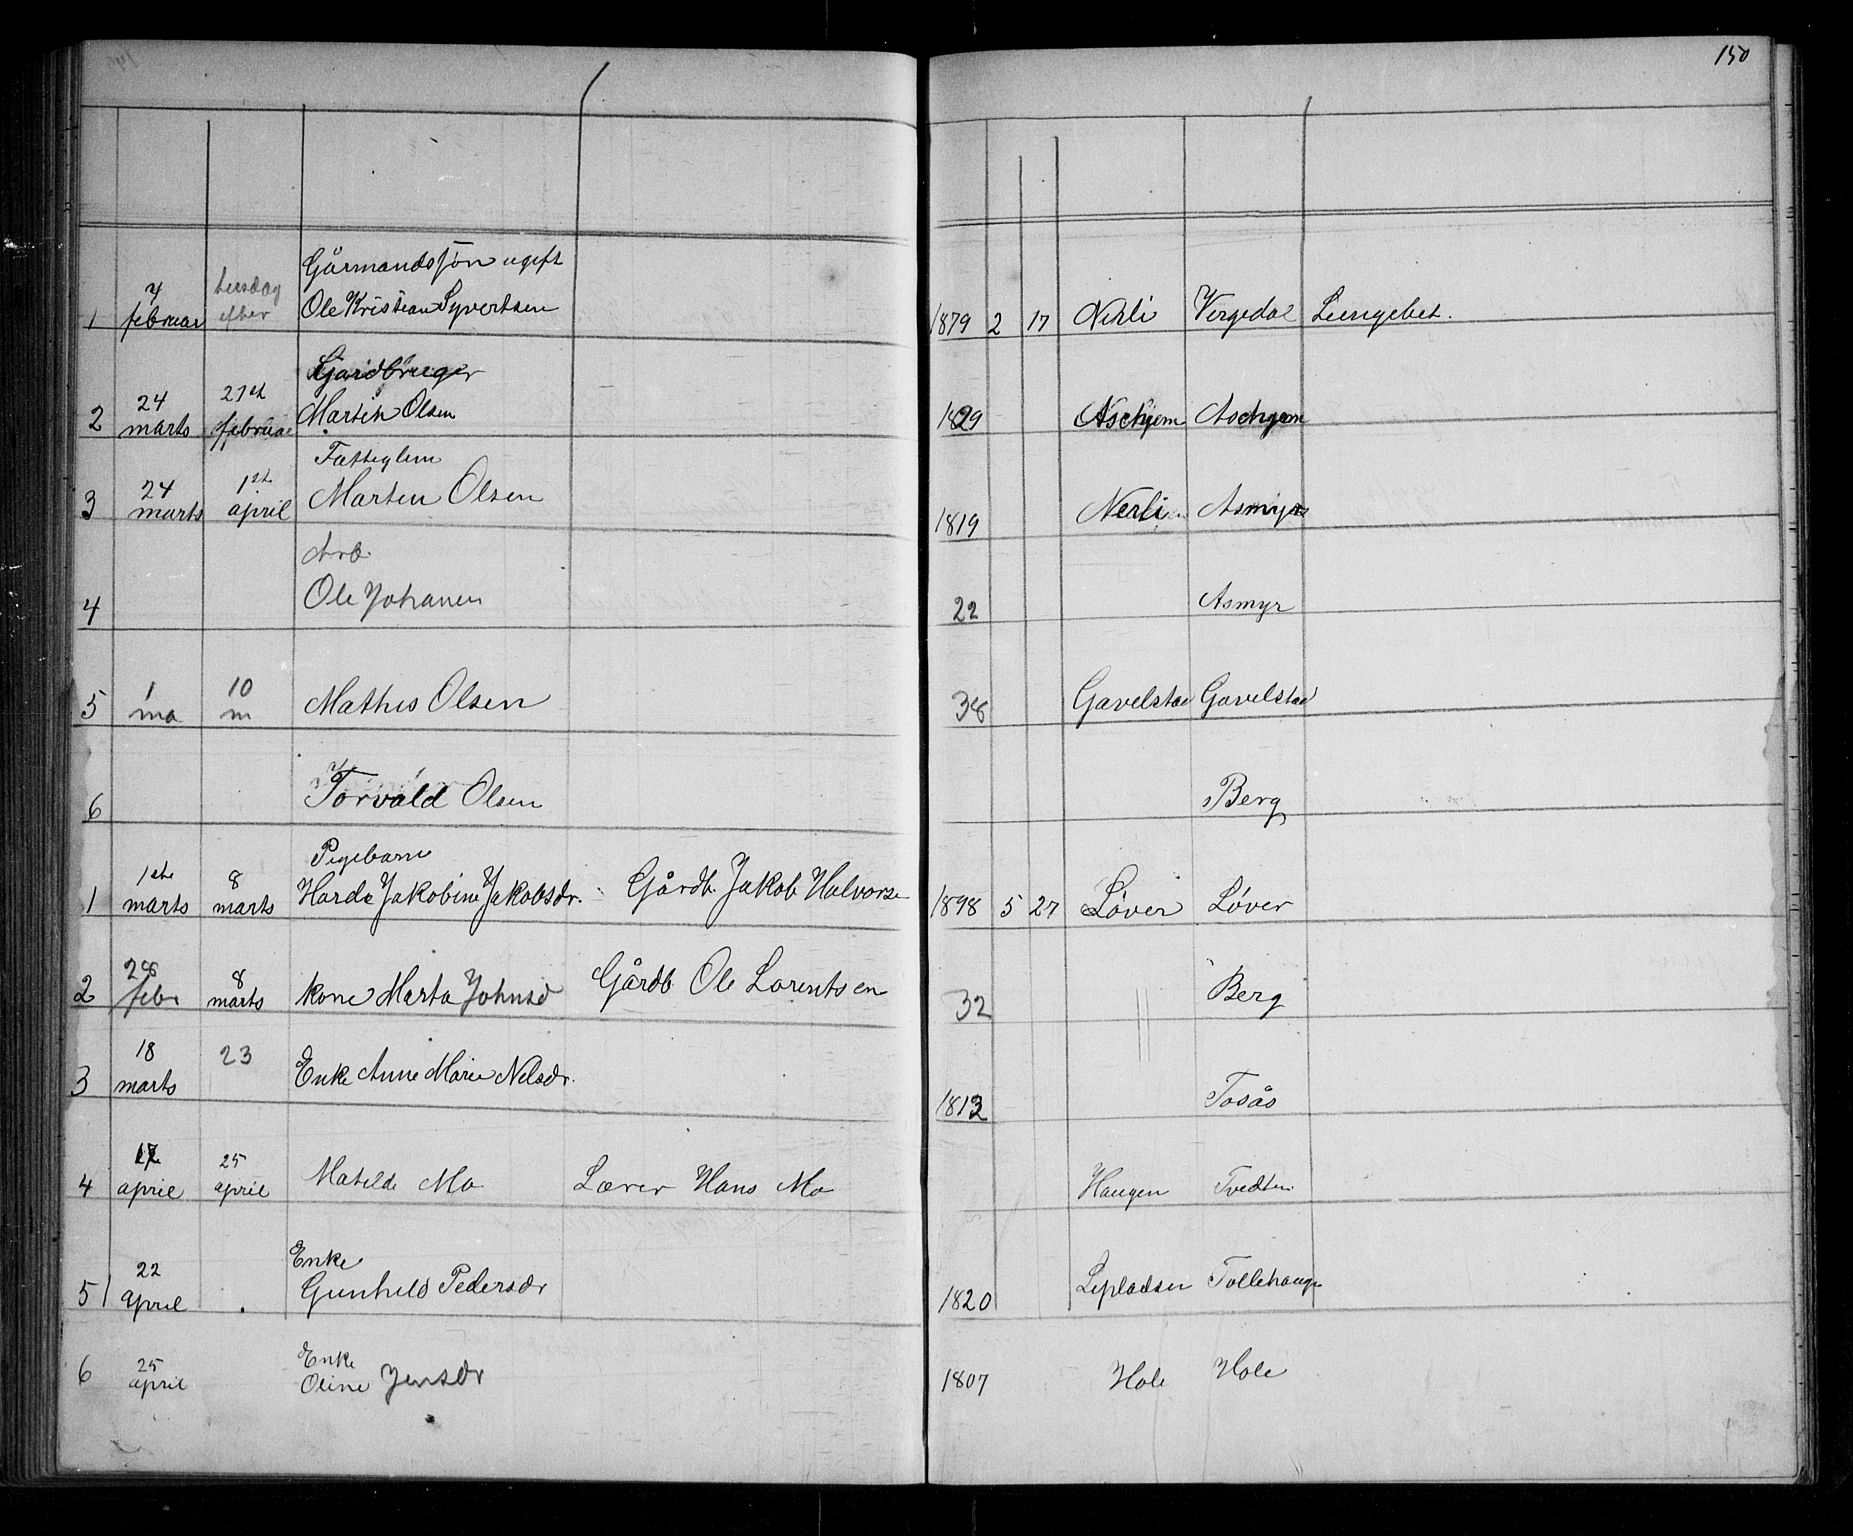 150
Gårmandssøn ugift
1 4 februar tirsdag efter Ole Kristian Syvertsen 1879 2 17 Nerli Vergedal Lungebet.
Gårdbruger
2 24 marts 27st februar Martin Olsen 1829 Aschjem Aschjem
Fattiglem
3 24 marts 1st april Martin Olsen 1819 Nerli Asmyr
Arb
4 Ole Johanen 22 Asmyr
5 1 ma 10 m Mathis Olsen 38 Gavelstad Gavelstad
6 Torvald Olsen Berg
Pigebarn
1 1ste marts 8 marts Harda Jakobine Jakobsdr. Gårdb Jakob Halvorse 1898 5 27 Løver Løver
2 28 febr 8 marts kone Marta Johnsd Gårdb Ole Lorentsen 32 Berg
3 18 marts 23 Enke Anne Marie Nelsdr. 1813 Tosås
4 april 25 april Matilde Mo Lærer Hans Mo Haugen Tvedten
Enke
5 22 april Gunhild Pedersdr 1820 Lepladsen Tollehaugn
Enke
6 25 april Oline Jensdr 1807 Hole Hole